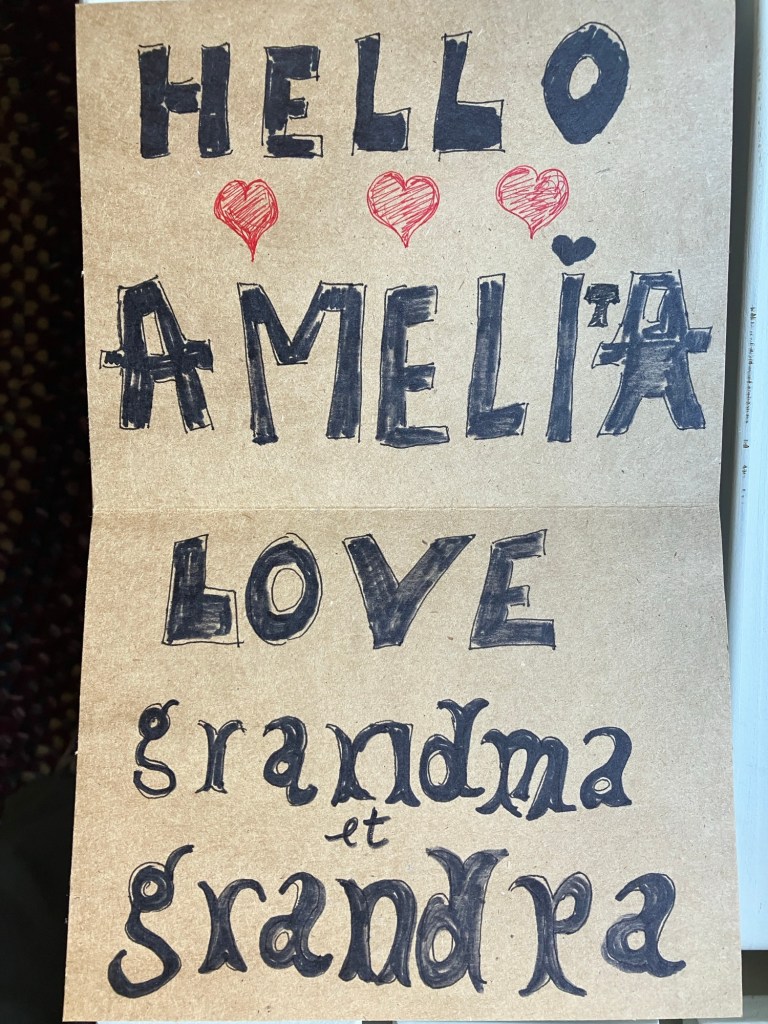 HELLO
AMELiTA
LOVE
grandma
et
grandpa